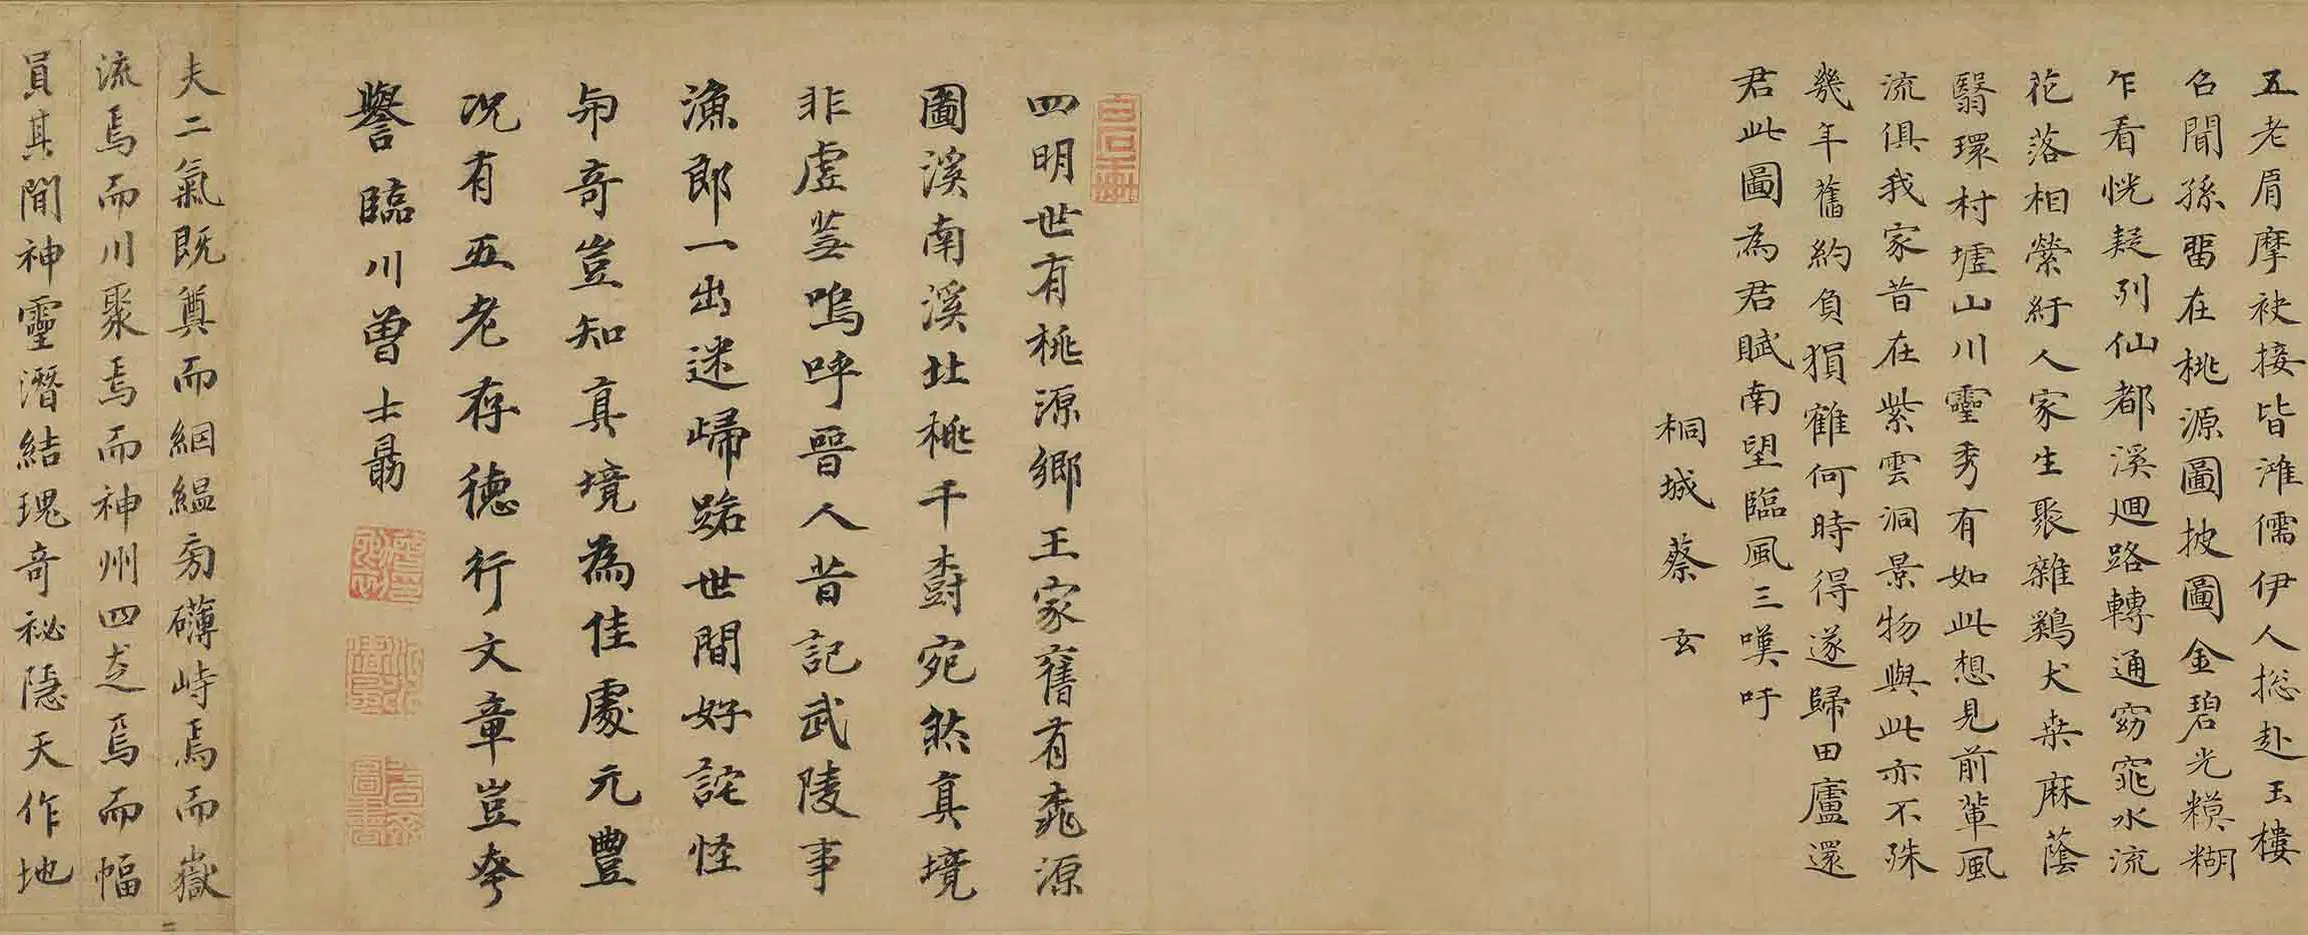 五老肩摩袂接皆淮儒伊人捴赴玉樓
召聞孫畱在桃源圖披圖金碧光糢糊
乍看恍疑列仙都溪迴路轉通窈窕水流
花落相縈紆人家生聚雜鷄犬桒麻蔭
翳環村墟山川靈秀有如此想見前軰風
流俱我家昔在紫雲洞景物與此亦不殊
幾年舊約負猿鶴何時得遂歸田廬還
君此圖為君賦南望臨風三嘆吁
桐城蔡玄
四明世有桃源鄉王家舊有桃源
圖溪南溪北桃千樹宛然真境
非虛蕪嗚呼晉人昔記武陵事
漁郎一出迷歸路世間好詫怪
與奇豈知真境為佳處元豐
况有五老存德行文章豈夸
譽臨川曾士勗
夫二氣既奠而絪緼旁礴峙焉而嶽
流焉而川聚焉而神州四辵焉而幅
員其間神靈潛結瑰奇祕隱天作地